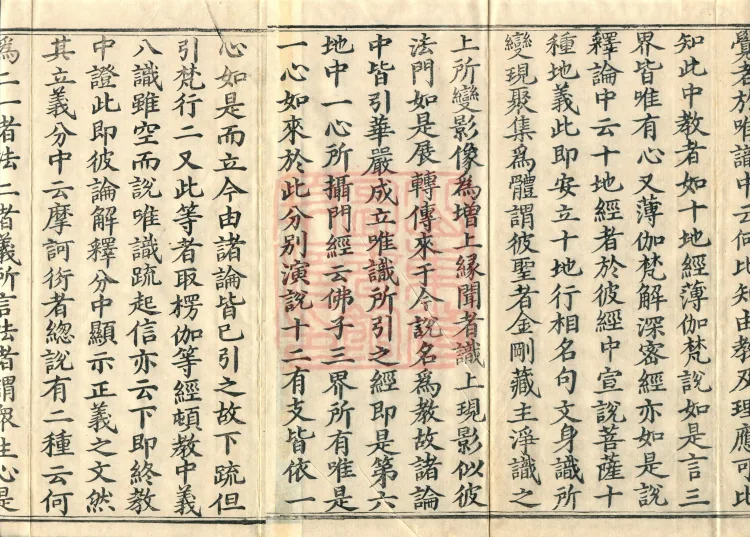 覺者於唯識中云何比知由教及理應可比
知此中教者如十地經薄伽梵說如是言三
界皆唯有心又薄伽梵解深密經亦如是說
釋論中云十地經者於彼經中宣說菩薩十
種地義此即安立十地行相名句文身識所
變現聚集爲體謂彼聖者金剛藏主淨識之
上所變影像為增上緣聞者識上現影似彼
法門如是展轉傳來于今說名爲教故諸論
中皆引華嚴成立唯識所引之經即是第六
地中一心所攝門經云佛子三界所有唯是
一心如來於此分別演說十二有支皆依一
心如是而立今由諸論皆已引之故下疏但
引梵行二又此等者取楞伽等經頓教中義
八識雖空而說唯識疏起信亦云下即終教
中證此即彼論解釋分中顯示正義之文然
其立義分中云摩訶衍者緫說有二種云何
爲二一者法二者義所信法者謂衆生心是